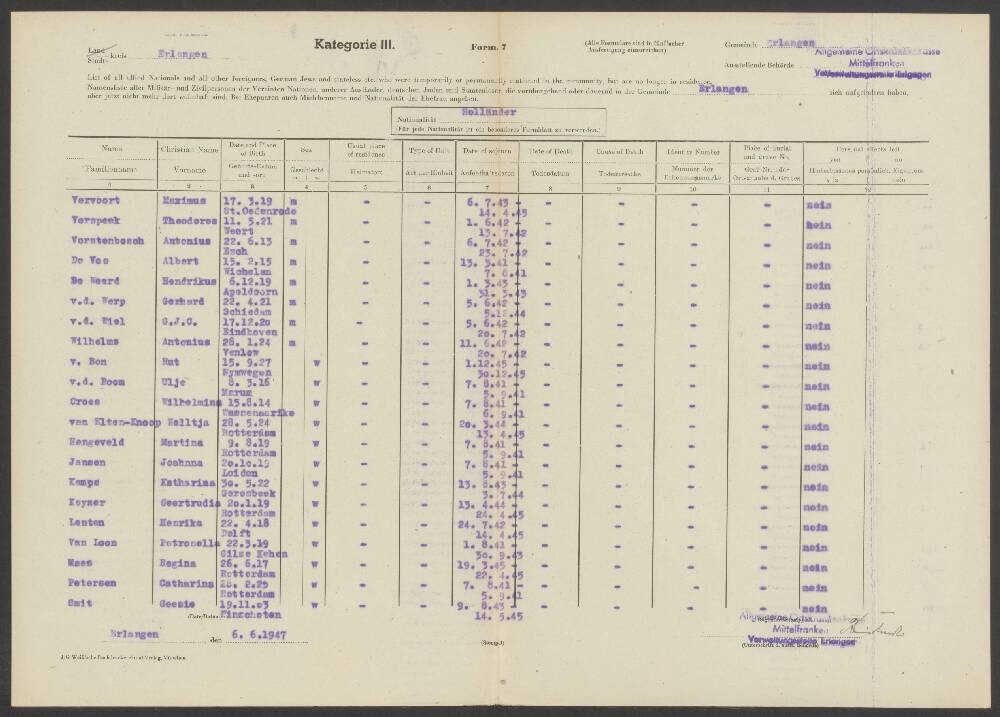 Land
Stadt- kreis Erlangen
Kategorie III.
Form. 7
(Alle Formulare sind in fünffacher
Ausfertigung einzureichen)
Gemeinde Erlangen
Ausstellende Behörde
Allgemeine Ortskrankenkasse
Mittelfranken
Verwaltungsstelle Erlangen
List of all allied Nationals and all other foreigners, German Jews and stateless etc. who were temporarily or permanently stationed in the community, but are no longer in residence.
Namensliste aller Militär- und Zivilpersonen der Vereinten Nationen, anderer Ausländer, deutscher Juden und Staatenloser, die vorübergehend oder dauernd in der Gemeinde Erlangen sich aufgehalten haben,
aber jetzt nicht mehr dort wohnhaft sind. Bei Ehepaaren auch Mädchenname und Nationalität der Ehefrau angeben.
Nationalität Holländer
(Für jede Nationalität ist ein besonderes Formblatt zu verwenden.)
Name Christian Name Date and Place of Birth Sex Usual place of residence Type of Unit Date of sojourn Date of Death Cause of Death Identity Number Place of burial and grave No. Personal effects left yes no
Familienname Vorname Geburts-Datum und -ort Geschlecht Heimatort Art der Einheit Aufenthaltsdaten Todesdatum Todesursache Nummer der Erkennungsmarke
1 2 3 4 5 6 7 8 9 10 11 12
Vervoort Maximus 17. 3.19 m - - 6. 7.43 - - - - - nein
St.Oedenrode 14. 4.45
Verspeek Theodores 11. 5.21 m - - 1. 6.42 - - - - - nein
Weert 13. 7.42
Vorstenbosch Antonius 22. 6.13 m - - 6. 7.42 - - - - - nein
Esch 23. 7.42
De Vos Albert 15. 2.15 m - - 13. 5.41 - - - - - nein
Wichelen 7. 6.41
De Weerd Hendrikus 6.12.19 m - - 1. 3.43 - - - - - nein
Apeldoorn 31. 3.43
v.d. Werp Gerhard 22. 4.21 m - - 5. 6.42 - - - - - nein
Schiedam 5.12.44
v.d. Wiel G.J.C. 17.12.20 m - - 5. 6.42 - - - - - nein
Eindhoven 20. 7.42
Wilhelms Antonius 28. 1.24 m - - 11. 6.42 - - - - - nein
Venlow 20. 7.42
v. Bon Rut 15. 9.27 w - - 1.12.45 - - - - - nein
Nymwegen 30.12.45
v.d. Boom Ulje 8. 3.16 w - - 7. 8.41 - - - - - nein
Marum 5. 9.41
Croes Wilhelmina 15.8.14 w - - 7. 8.41 - - - - - nein
6. 9.41
van Elten-Knoop Nelltja 28. 5.24 w - - 20. 3.44 - - - - - nein
Rotterdam 13. 4.45
Hengeveld Martina 9. 8.19 w - - 7. 8.41 - - - - - nein
Rotterdam 5. 9.41
Jansen Joahnna 20.10.19 w - - 7. 8.41 - - - - - nein
Leiden 5. 9.41
Kamps Katharina 30. 5.22 w - - 13. 8.43 - - - - - nein
Geresbeek 3. 7.44
Keyzer Geertrudis 20.1.19 w - - 13. 4.44 - - - - - nein
Rotterdam 24. 4.45
Lenten Henrika 22. 4.18 w - - 24. 7.42 - - - - - nein
Delft 14. 4.45
Van Loon Petronella 22.3.19 w - - 1. 8.42 - - - - - nein
Gilse Kehen 30. 9.43
Maas Regina 26. 6.17 w - - 19. 3.45 - - - - - nein
Rotterdam 22. 4.45
Petersen Catharina 28. 2.25 w - - 7. 8.41 - - - - - nein
Rotterdam 5. 9.41
Smit Geesie 19.11.03 w - - 9. 8.43 - - - - - nein
Finschoten 14. 5.45
(Date/Datum)
Erlangen den 6. 6.1947
(Stempel)
Allgemeine Ortskrankenkasse
Mittelfranken
Verwaltungsstelle Erlangen